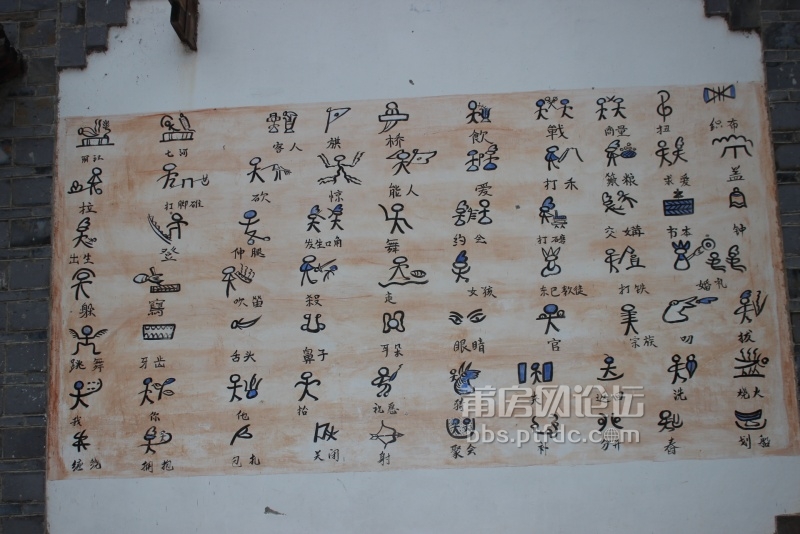 客人 旗 桥 飲 戦 商量 扭 织布
拉 打脚碓 砍 惊 能人 爱 打禾 籴粮 求爱 盖
出生 登 伸腿 发生口角 舞 约会 打 交媾 书本 钟
躲 寫 吹笛 殺 走 女孩 东巴教徒 打铁 婚礼
跳舞 牙齿 舌头 鼻子 耳朵 眼睛 官 宗族 叨 拔
我 你 他 抬 记恶 洗 烧火
缠绕 拥抱 刁扎 关闭 射 聚会 补 分开 春 划船
莆房网论坛
bbs.ptfdc.com